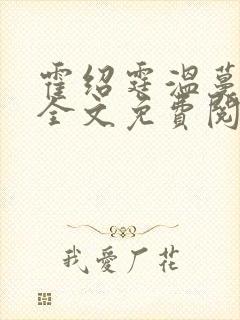 霍绍霆温蔓
全文免费阅
我爱厂花